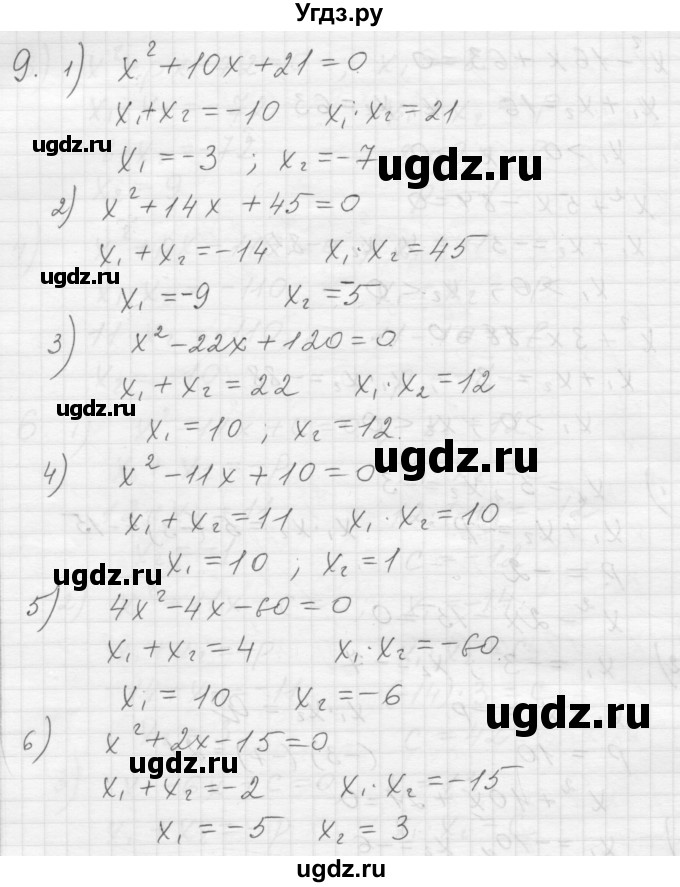 Угдз.ру
9. 1) x² + 10x + 21 = 0
x₁ + x₂ = -10 x₁ · x₂ = 21
ugdz.ru
x₁ = -3 ; x₂ = -7
ugdz.ru
2) x² + 14x + 45 = 0
x₁ + x₂ = -14 x₁ · x₂ = 45
ugdz.ru
x₁ = -9 x₂ = -5
3) x² - 22x + 120 = 0
x₁ + x₂ = 22 x₁ · x₂ = 12
ugdz.ru
x₁ = 10 ; x₂ = 12.
ugdz.ru
4) x² - 11x + 10 = 0
x₁ + x₂ = 11 x₁ · x₂ = 10
x₁ = 10 ; x₂ = 1
ugdz.ru
5) 4x² - 4x - 60 = 0
x₁ + x₂ = 4 x₁ · x₂ = -60
x₁ = 10 x₂ = -6
ugdz.ru
6) x² + 2x - 15 = 0
ugdz.ru
x₁ + x₂ = -2 x₁ · x₂ = -15
x₁ = -5 x₂ = 3
ugdz.ru